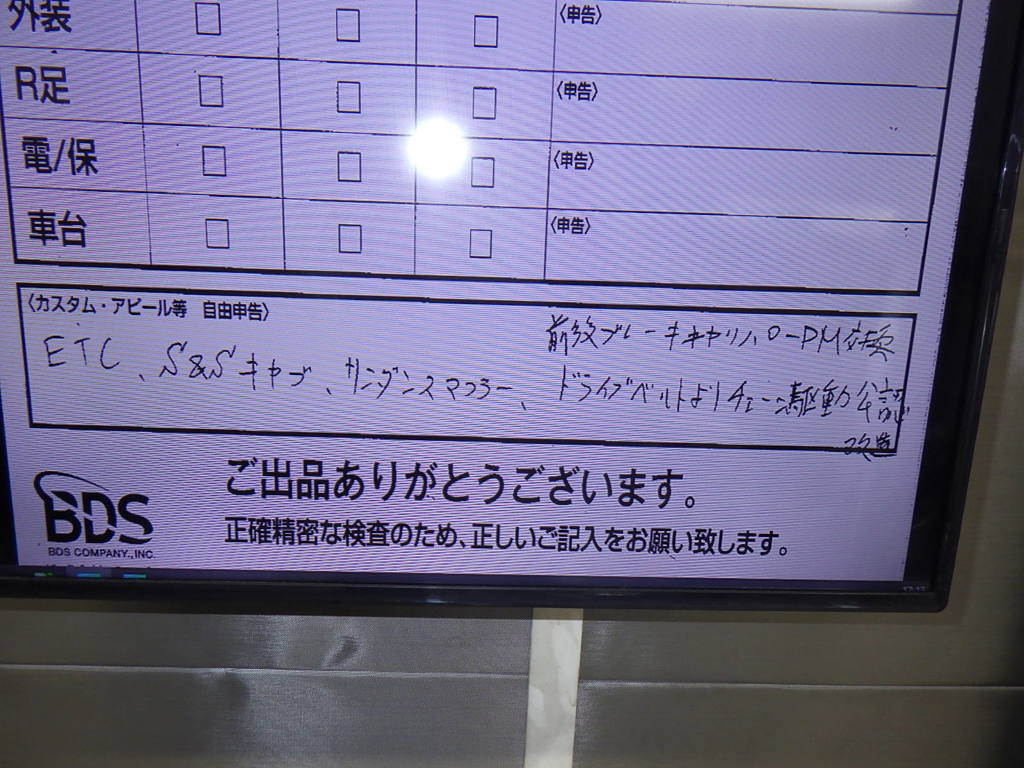 外装 □ □ □ 〈申告〉
R足 □ □ □ 〈申告〉
電/保 □ □ □ 〈申告〉
車台 □ □ □ 〈申告〉
〈カスタム・アピール等 自由申告〉
前後ブレーキキャリパーPM交換
ETC、S&Sキャブ、サンダンスマフラー、ドライブベルトよりチェーン駆動公認
改造
BDS
BDS COMPANY.,INC.
ご出品ありがとうございます。
正確精密な検査のため、正しいご記入をお願い致します。